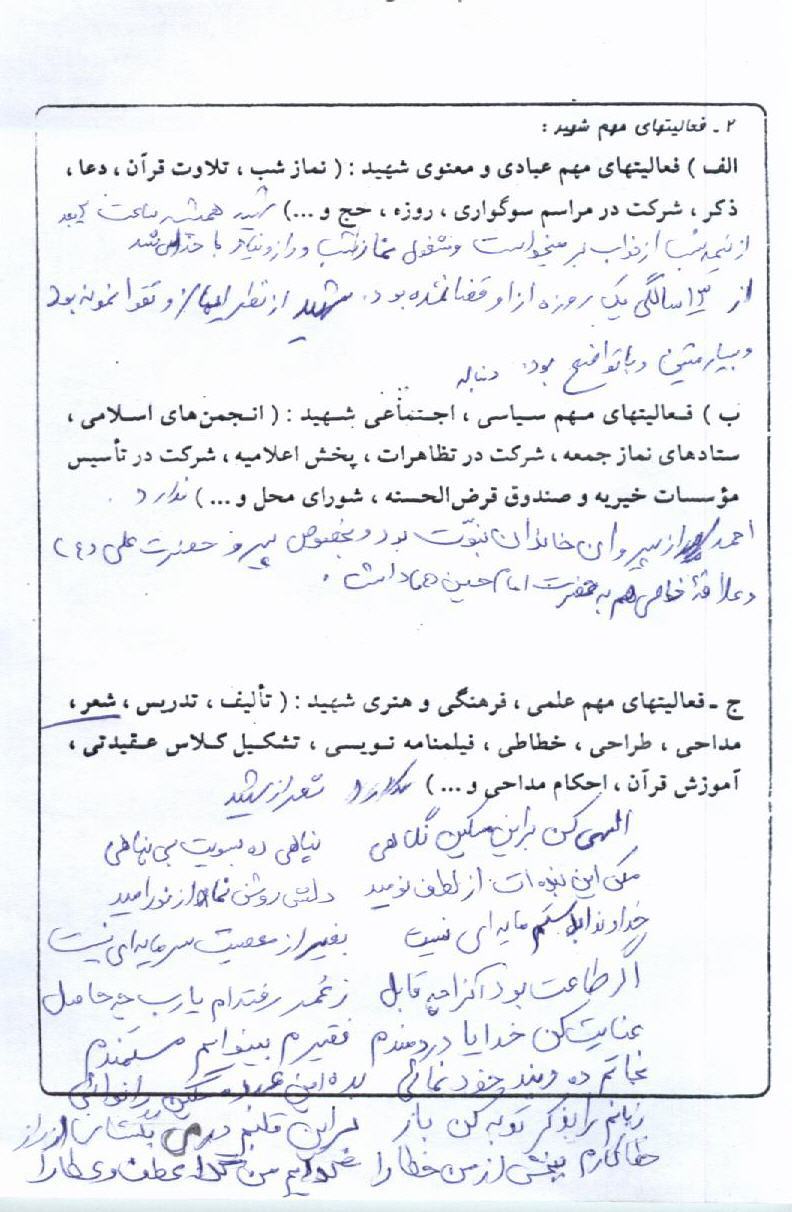 ۲ ـ فعالیتهای مهم شهید :
الف ) فعالیتهای مهم عبادی و معنوی شهید : ( نماز شب ، تلاوت قرآن ، دعا ،
ذکر ، شرکت در مراسم سوگواری ، روزه ، حج و ... ) شهید همیشه ساعت ۲ بعد
از نیمه شب از خواب بر میخواست و مشغول نماز شب و راز و نیاز با خدا می شد
از ۱۳ سالگی یک روزه از او قضا نشده بود . شهید از نظر ایمان و تقوا نمونه بود
و بسیار متین و با تواضع بود . دنباله
ب ) فعالیتهای مهم سیاسی ، اجتماعی شهید : ( انجمن‌های اسلامی ،
ستادهای نماز جمعه ، شرکت در تظاهرات ، پخش اعلامیه ، شرکت در تأسیس
مؤسسات خیریه و صندوق قرض‌الحسنه ، شورای محل و ... ) ندارد .
احمد از پیروان خاندان نبوّت بود و بخصوص پیرو حضرت علی (ع)
و علاقهٔ خاصی هم به حضرت امام حسین داشت .
ج ـ فعالیتهای مهم علمی ، فرهنگی و هنری شهید : ( تألیف ، تدریس ، شعر ،
مداحی ، طراحی ، خطاطی ، فیلمنامه نویسی ، تشکیل کلاس عقیدتی ،
آموزش قرآن ، احکام مداحی و ... ) شعر از شهید
الهی کن بر این مسکین نگاهی پناهی ده بسویت بی پناهی
مکن این بنده ات از لطف نومید دلش روشن نما از نور امید
خداوندا مایه ای نیست بغیر از معصیت سرمایه ای نیست
اگر طاعت بود آنرا چه قابل ز عمر رفته ام یارب چه حاصل
عنایت کن خدایا دردمندم فقیرم بینوایم مستمندم
نجاتم ده ز بند خود نمائی بده این را نوائی
زبانم را بذکر توبه کن باز بر این قلبم دری بگشا از راز
خطاکارم ببخش از من خطا را من گدا عطف و عطا را